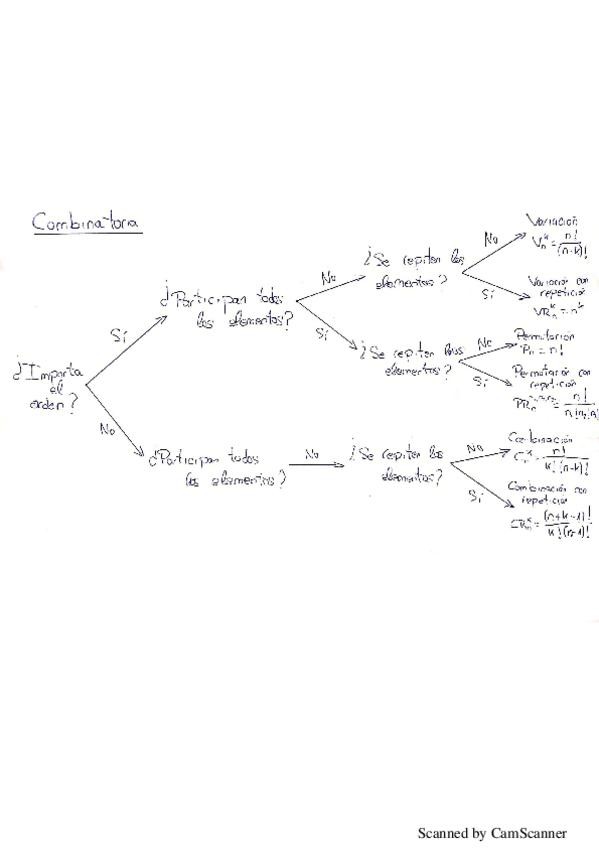 Combinatoria
¿Importa
el
orden?
Sí
No
¿Participan todos
los elementos?
No
Sí
¿Se repiten los
elementos?
No
Sí
Variación
V_n^k = n! / (n-k)!
Variación con
repetición
VR_n^k = n^k
¿Se repiten los
elementos?
No
Sí
Permutación
P_n = n!
Permutación con
repetición
PR_n = n! /
¿Participan todos
los elementos?
No
¿Se repiten los
elementos?
No
Sí
Combinación
C_n^k = n! / k!(n-k)!
Combinación con
repetición
CR_n^k = (n+k-1)! / k!(n-1)!
Scanned by CamScanner